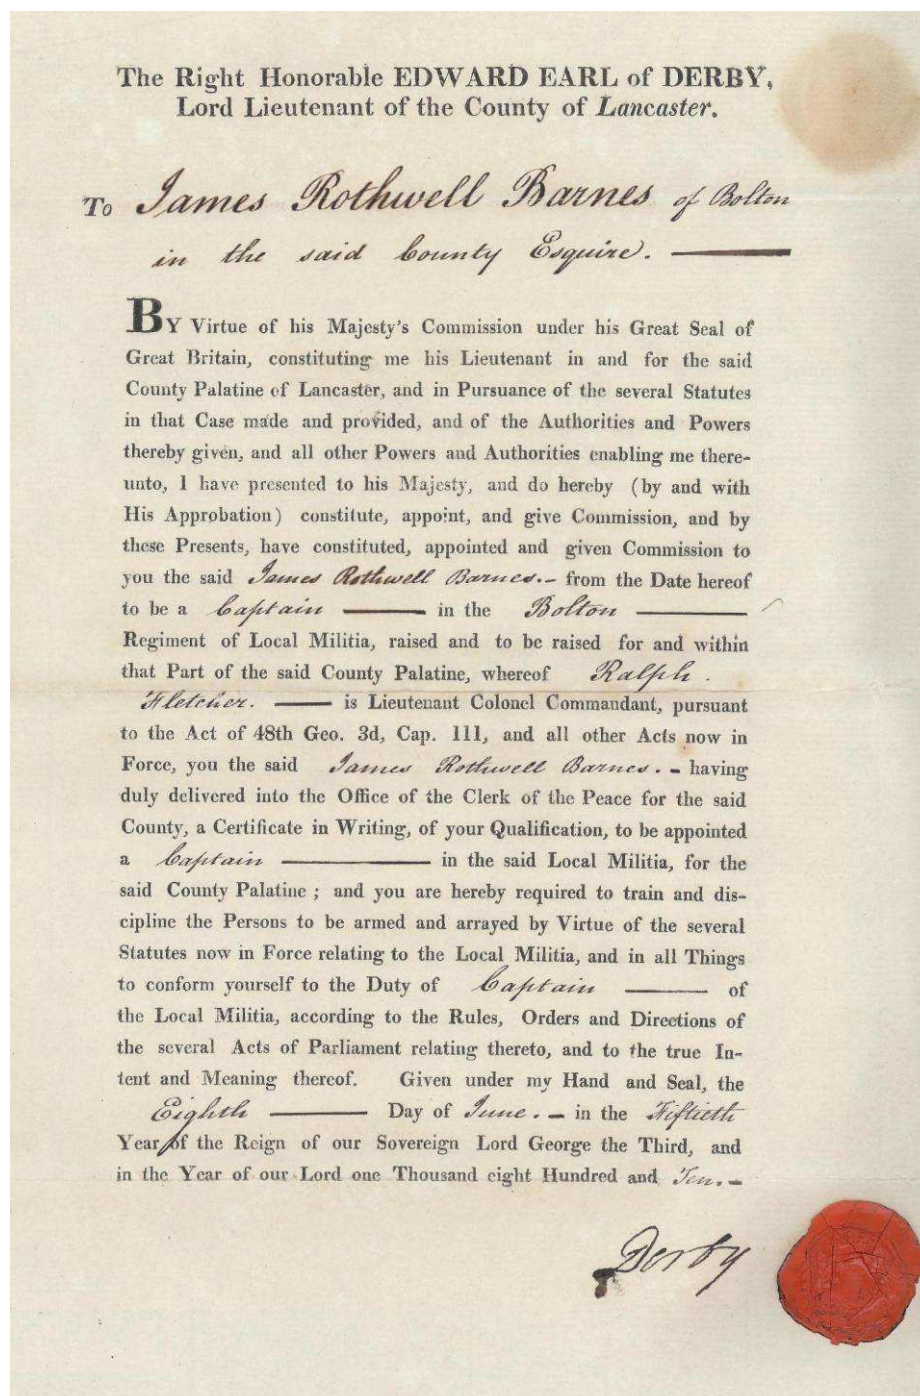 The Right Honorable EDWARD EARL of DERBY,
Lord Lieutenant of the County of Lancaster.
To James Rothwell Barnes of Bolton
in the said County Esquire.
BY Virtue of his Majesty's Commission under his Great Seal of
Great Britain, constituting me his Lieutenant in and for the said
County Palatine of Lancaster, and in Pursuance of the several Statutes
in that Case made and provided, and of the Authorities and Powers
thereby given, and all other Powers and Authorities enabling me there-
unto, I have presented to his Majesty, and do hereby (by and with
His Approbation) constitute, appoint, and give Commission, and by
these Presents, have constituted, appointed and given Commission to
you the said James Rothwell Barnes.- from the Date hereof
to be a Captain in the Bolton
Regiment of Local Militia, raised and to be raised for and within
that Part of the said County Palatine, whereof Ralph
Fletcher. is Lieutenant Colonel Commandant, pursuant
to the Act of 48th Geo. 3d, Cap. 111, and all other Acts now in
Force, you the said James Rothwell Barnes. - having
duly delivered into the Office of the Clerk of the Peace for the said
County, a Certificate in Writing, of your Qualification, to be appointed
a Captain in the said Local Militia, for the
said County Palatine ; and you are hereby required to train and dis-
cipline the Persons to be armed and arrayed by Virtue of the several
Statutes now in Force relating to the Local Militia, and in all Things
to conform yourself to the Duty of Captain of
the Local Militia, according to the Rules, Orders and Directions of
the several Acts of Parliament relating thereto, and to the true In-
tent and Meaning thereof. Given under my Hand and Seal, the
Eighth Day of June. - in the Fiftieth
Year of the Reign of our Sovereign Lord George the Third, and
in the Year of our Lord one Thousand eight Hundred and Ten.-
Derby